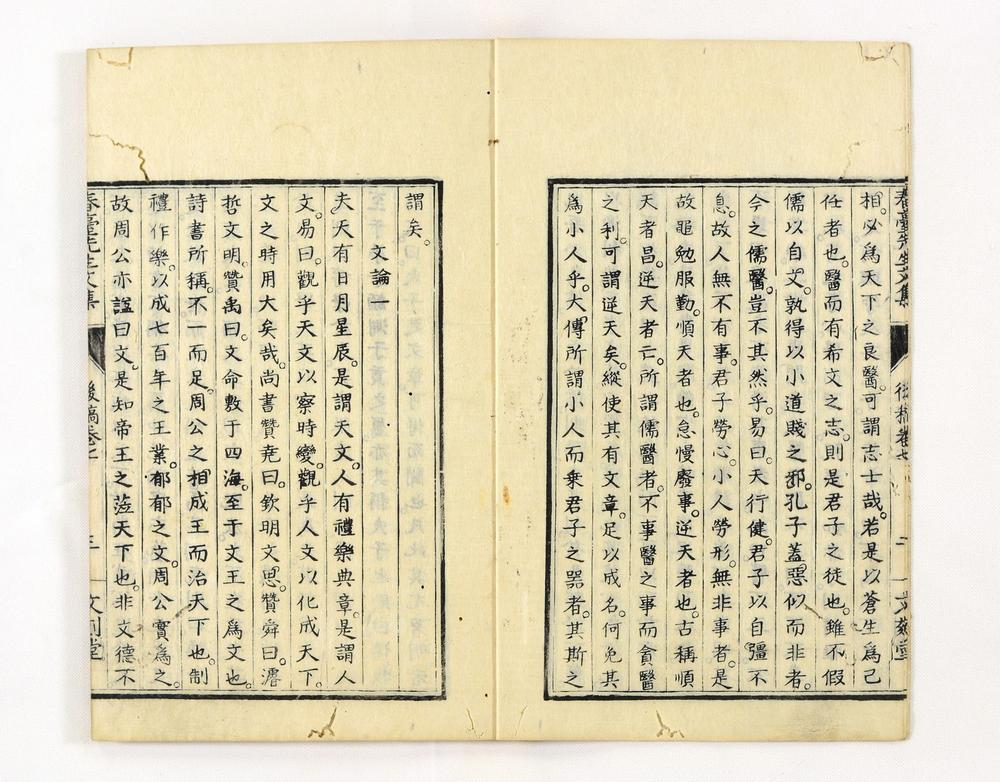 相。必為天下之良醫。可謂志士哉。若是以蒼生為己
任者也。醫而有希文之志。則是君子之徒也。雖不假
儒以自文。孰得以小道賤之邪。孔子蓋惡似而非者。
今之儒醫。豈不其然乎。易曰天行健。君子以自彊不
息。故人無不有事。君子勞心。小人勞形。無非事者。是
故黽勉服勤。順天者也。怠慢廢事。逆天者也。古稱順
天者昌。逆天者亡。所謂儒醫者。不事醫之事而貪醫
之利。可謂逆天矣。縱使其有文章。足以成名。何免其
為小人乎。大傳所謂小人而乗君子之器者。其斯之
謂矣。
文論一
夫天有日月星辰。是謂天文。人有禮樂典章。是謂人
文。易曰。觀乎天文以察時變。觀乎人文以化成天下。
文之時用大矣哉。尚書贊尭曰。欽明文思。贊舜曰濬
哲文明。贊禹曰。文命敷于四海。至于文王之為文也。
詩書所稱。不一而足。周公之相成王而治天下也。制
禮作樂。以成七百年之王業。郁郁之文。周公實為之。
故周公亦諡曰文。是知帝王之蒞天下也。非文德不
春臺先生文集
後稿卷七